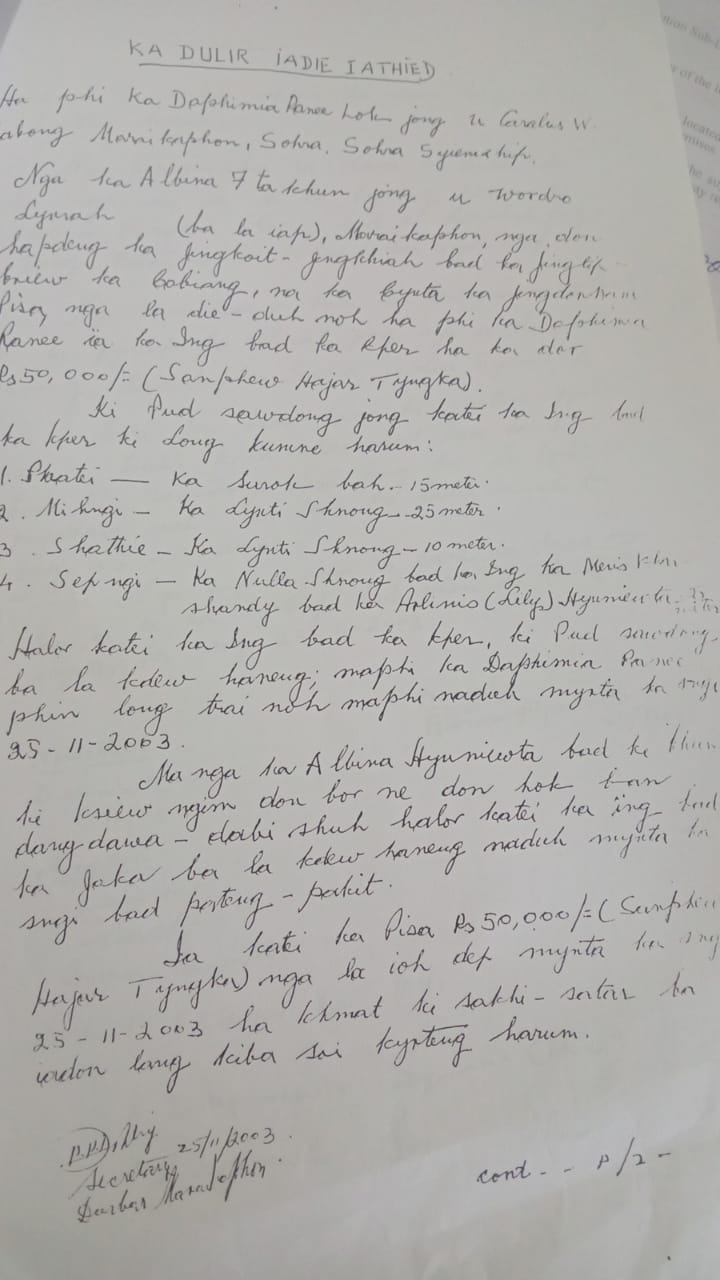 KA DULIR IADIE IATHIED
Ha phi Ka Daphimia Ranee Lok jong u Carolus W.
abong Maraikaphon, Sohra, Sohra Syiemship.
Nga ka Albina 7 ta khun jong u Wordro
Lymah (ba la iap), Maraikaphon, nga don
hapdeng ka jingkoit-jengkhiah bad ka jingtip
briew ka babiang, na ka bynta ka jingdonkam
Pisa, nga la die-duh noh ha phi ka Daphimia
Ranee ïa ka Ing bad ka kper ha ka dor
Rs 50,000/= (Sanphew Hajar Tyngka).
Ki Pud sawdong jong katei ka Ing bad
ka kper ki long kumne harum:
1. Shatei — Ka Surok bah - 15 meter.
2. Mihngi — Ka Lynti Shnong - 25 meter.
3. Shathie — Ka Lynti Shnong - 10 meter.
4. Sepngi — Ka Nulla Shnong bad ka Ing ka Meris
shandy bad ka Arlinis (Lily) Hyuniewta
Halor katei ka Ing bad ka kper, ki Pud sawdong
ba la kdew haneng; maphi ka Daphimia Ranee
phin long trai noh maphi naduh mynta ka sngi
25-11-2003.
Ma nga ka Albina Hyuniewta bad ki khun
ki ksiew ngim don bor ne don hok ban
dang dawa - dabi shuh halor katei ka ïng bad
ka Jaka ba la kdew haneng naduh mynta ka
sngi bad pateng - pakit.
Ia katei ka Pisa Rs 50,000/= (Sanphew
Hajar Tyngka) nga la ioh dep mynta ka sngi
25-11-2003 ha khmat ki sakhi - satar ba
iadon lang kiba soi kyrteng harum.
25/11/2003.
Secretary
Durbar
cont - - P/2 -